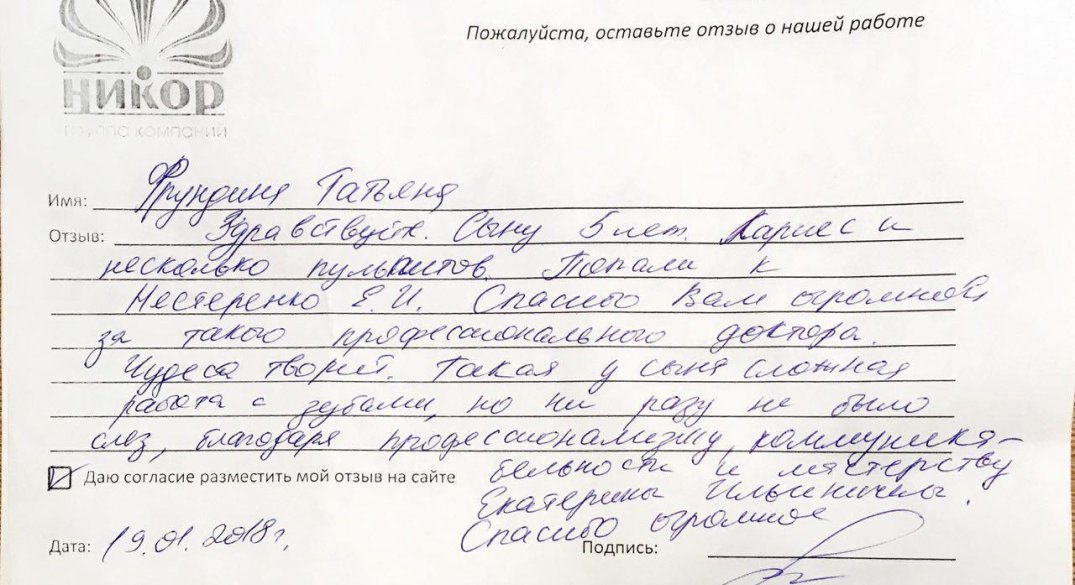 Пожалуйста, оставьте отзыв о нашей работе
НИКОР
группа компаний
Имя: Фрундина Татьяна
Отзыв: Здравствуйте. Сыну 5 лет. Кариес и
несколько пульпитов. Попали к
Нестеренко Е.И. Спасибо Вам огромное
за такого профессионального доктора.
Чудеса творит. Такая у сына сложная
работа с зубами, но ни разу не было
слез, благодаря профессионализму, коммуника-
бельности и мастерству
Даю согласие разместить мой отзыв на сайте
Екатерины Ильиничны.
Спасибо огромное
Дата: 19.01.2018г.
Подпись: